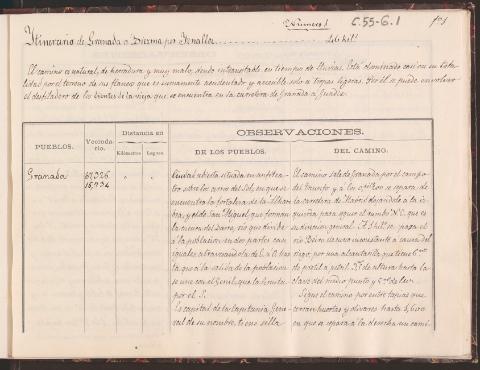 Número 1
C.55-G.1
Itinerario de Granada a Diezma por Tonallos
El camino es natural, de herradura y muy malo, siendo intransitable en tiempo de lluvias. Está dominado casi en su tota-
lidad por el terreno de sus flancos que es sumamente accidentado y accesible solo a tropas ligeras. Por él se puede envolver
el desfiladero de los Dientes de la vieja que se encuentra en la carretera de Granada a Guadix
PUEBLOS.
Vecinda-
rio.
Distancia en
Kilómetros
Leguas
OBSERVACIONES.
DE LOS PUEBLOS.
DEL CAMINO.
Granada
67,326
15,734
Ciudad abierta situada en anfitea-
tro sobre los cerros del Sol, en que se
encuentra la fortaleza de la Alham-
bra, y el de San Miguel, que forman
la cuenca del Darro, rio que divide
a la población en dos partes casi
iguales atravesandola de E. a O. has-
ta que a la salida de la población
se une con el Genil, que la limita
por el S.
Es capital de la Capitanía Gene-
ral de su nombre, tiene silla
El camino sale de Granada por el campo
del Triunfo y a los 0,K800 se separa de
la carretera de Jaén dejandola a la iz-
quierda, para seguir el rumbo N.E. que es
su direccion general. A 3 kil. se pasa el
rio Beiro
por una alcantarilla que tiene 6m
de pretil a pretil, 3,m de altura hasta la
clave del medio punto y 5m de luz.
Sigue el camino por entre tapias que
cierran huertas y olivares hasta
en que se separa a la derecha un cami-